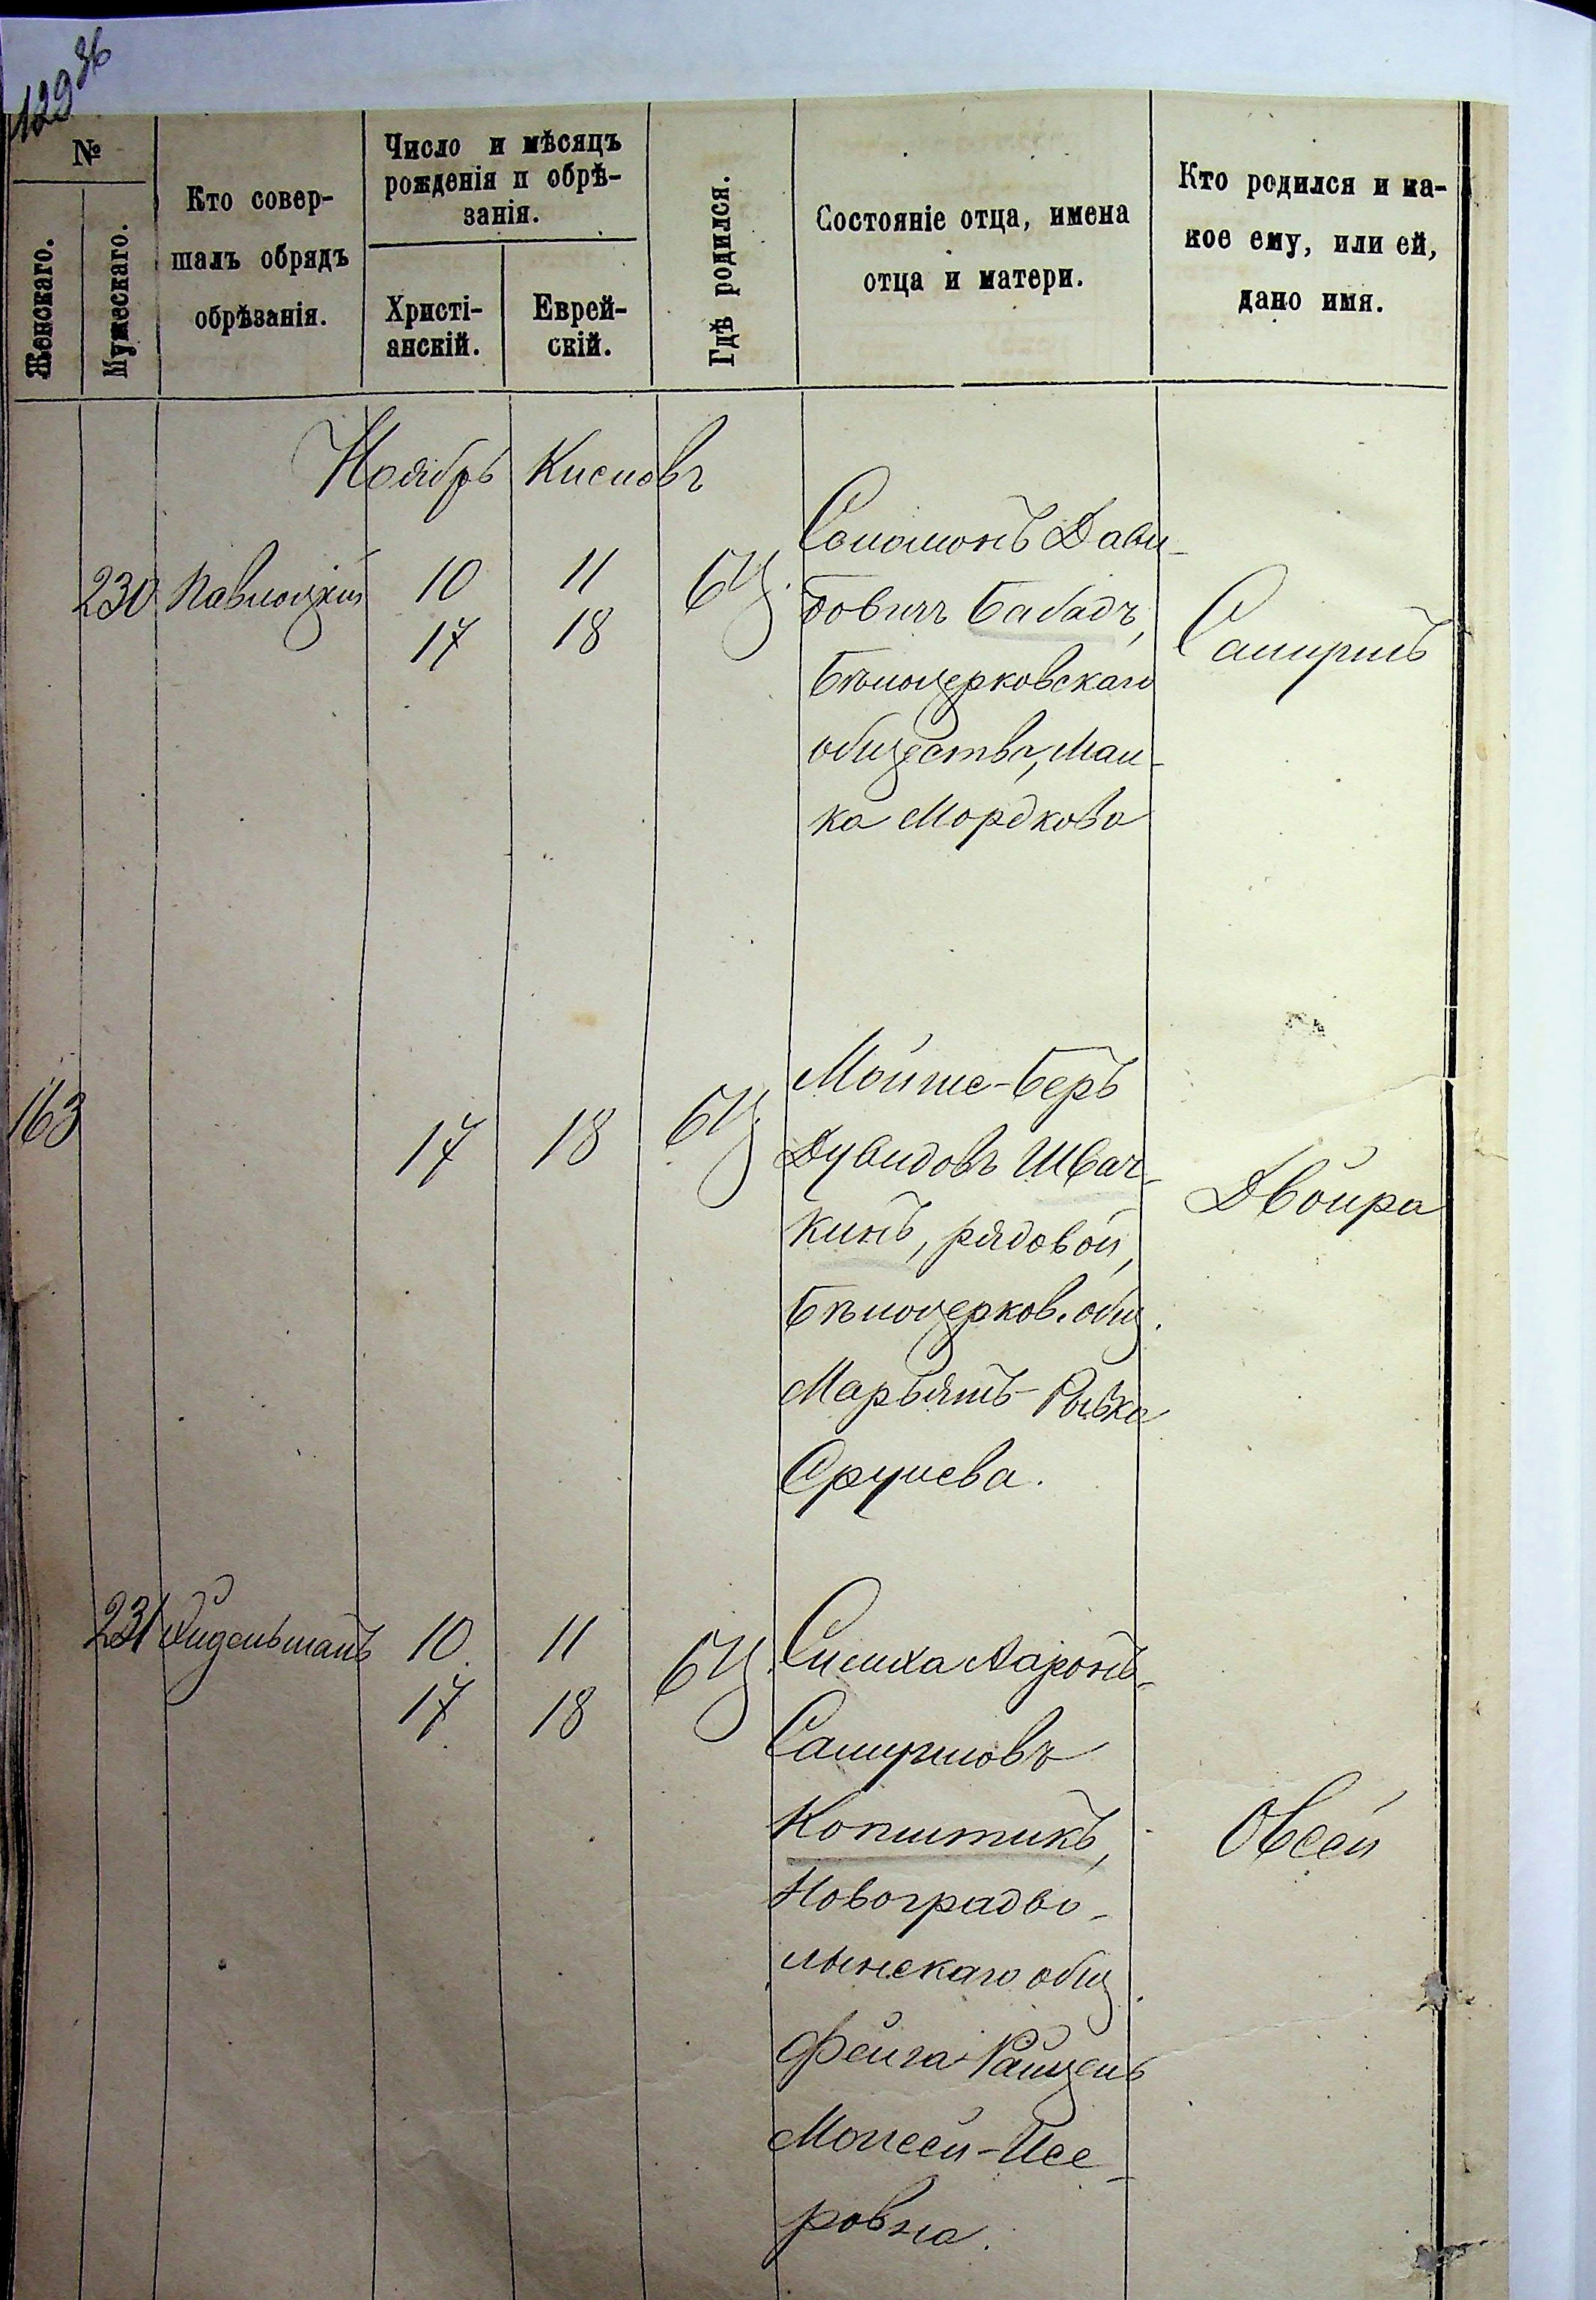 129 36
№
Женскаго.
Мужескаго.
Кто совер-
шалъ обрядъ
обрѣзанія.
Число и мѣсяцъ
рожденія и обрѣ-
занія.
Христі-
анскій.
Еврей-
скій.
Гдѣ родился.
Состояніе отца, имена
отца и матери.
Кто родился и ка-
кое ему, или ей,
дано имя.
Ноябрь Кислевъ
230 Павлоцкій 10 11 БЦ.
17 18
Соломонъ Дави-
довичъ Бабадъ,
Бѣлоцерковскаго
общества, Мал-
ка Мордкова
Самуилъ
163 17 18 БЦ.
Мойше-Беръ
Дувидовъ Швач-
кинъ, рядовой,
Бѣлоцерков. общ.
Марьямъ-Ривка
Сруlева.
Двойра
231 10 11 БЦ.
17 18
Симха Ааронъ-
Самуиловъ
Копштикъ,
Новоградво-
лынскаго общ.
Фейга-Райцель
Моисей-Исе-
ровна.
Овсей